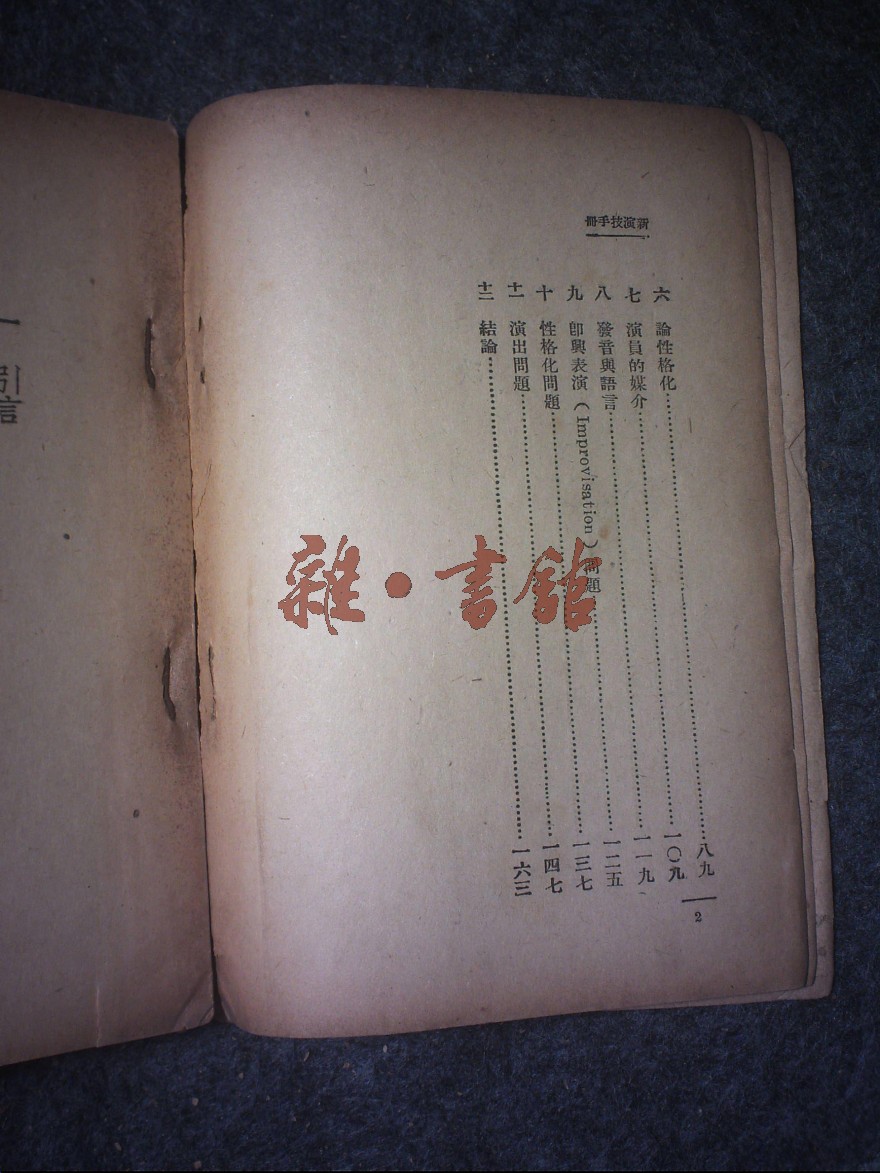 新演技手冊
六 論性格化……八九
七 演員的媒介……一〇九
八 發音與語言……一一九
九 卽興表演（Improvisation）問題……一二五
十 性格化問題……一三七
十一 演出問題……一四七
十二 結論……一六三
2
一 引言
雜•書館